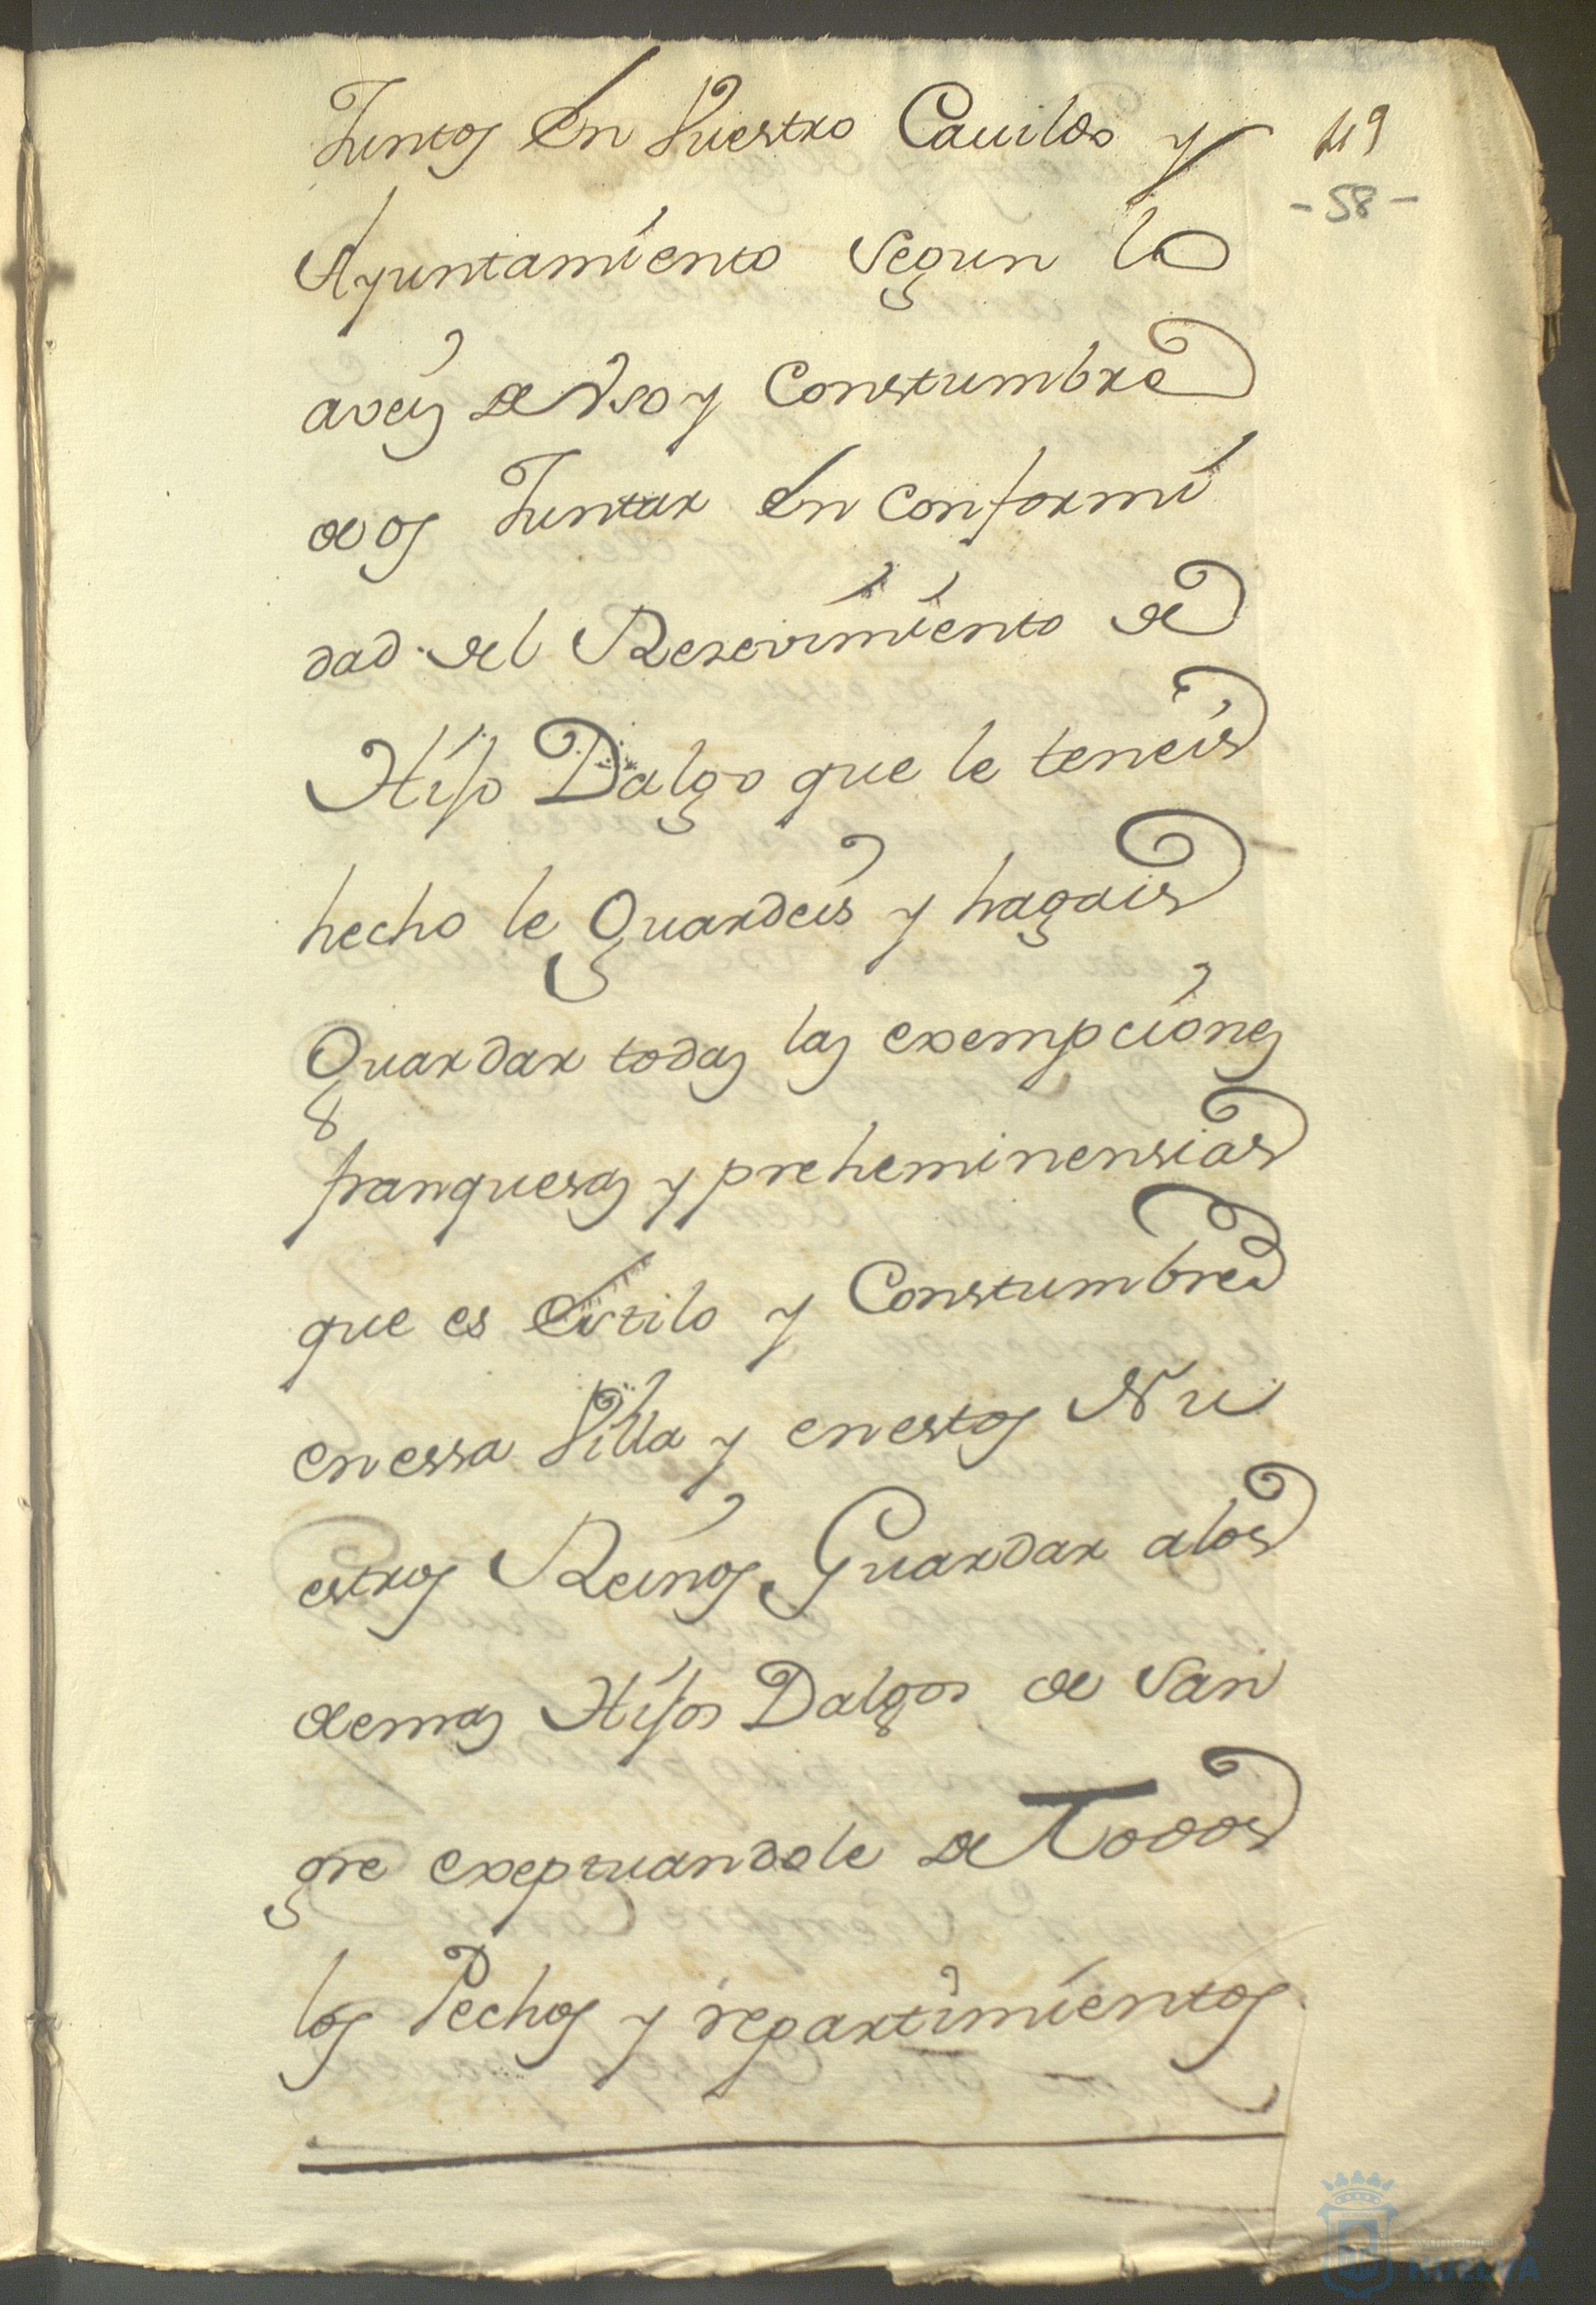 Juntos en Vuestro Cauildo y
49
- 58 -
Ayuntamiento segun lo
aveis de Vso y Constumbre
de os Juntar en conformi
dad del Resevimiento de
Hijo Dalgo que le teneis
hecho le Guardeis y hagais
Guardar todas las exempciones
franquesas y preheminensias
que es estilo y Constumbre
en essa Villa y en estos Nu
estros Reinos Guardar a los
demas Hijos Dalgos de San
gre exeptuandole de Todos
los Pechos y repartimientos
HUELVA